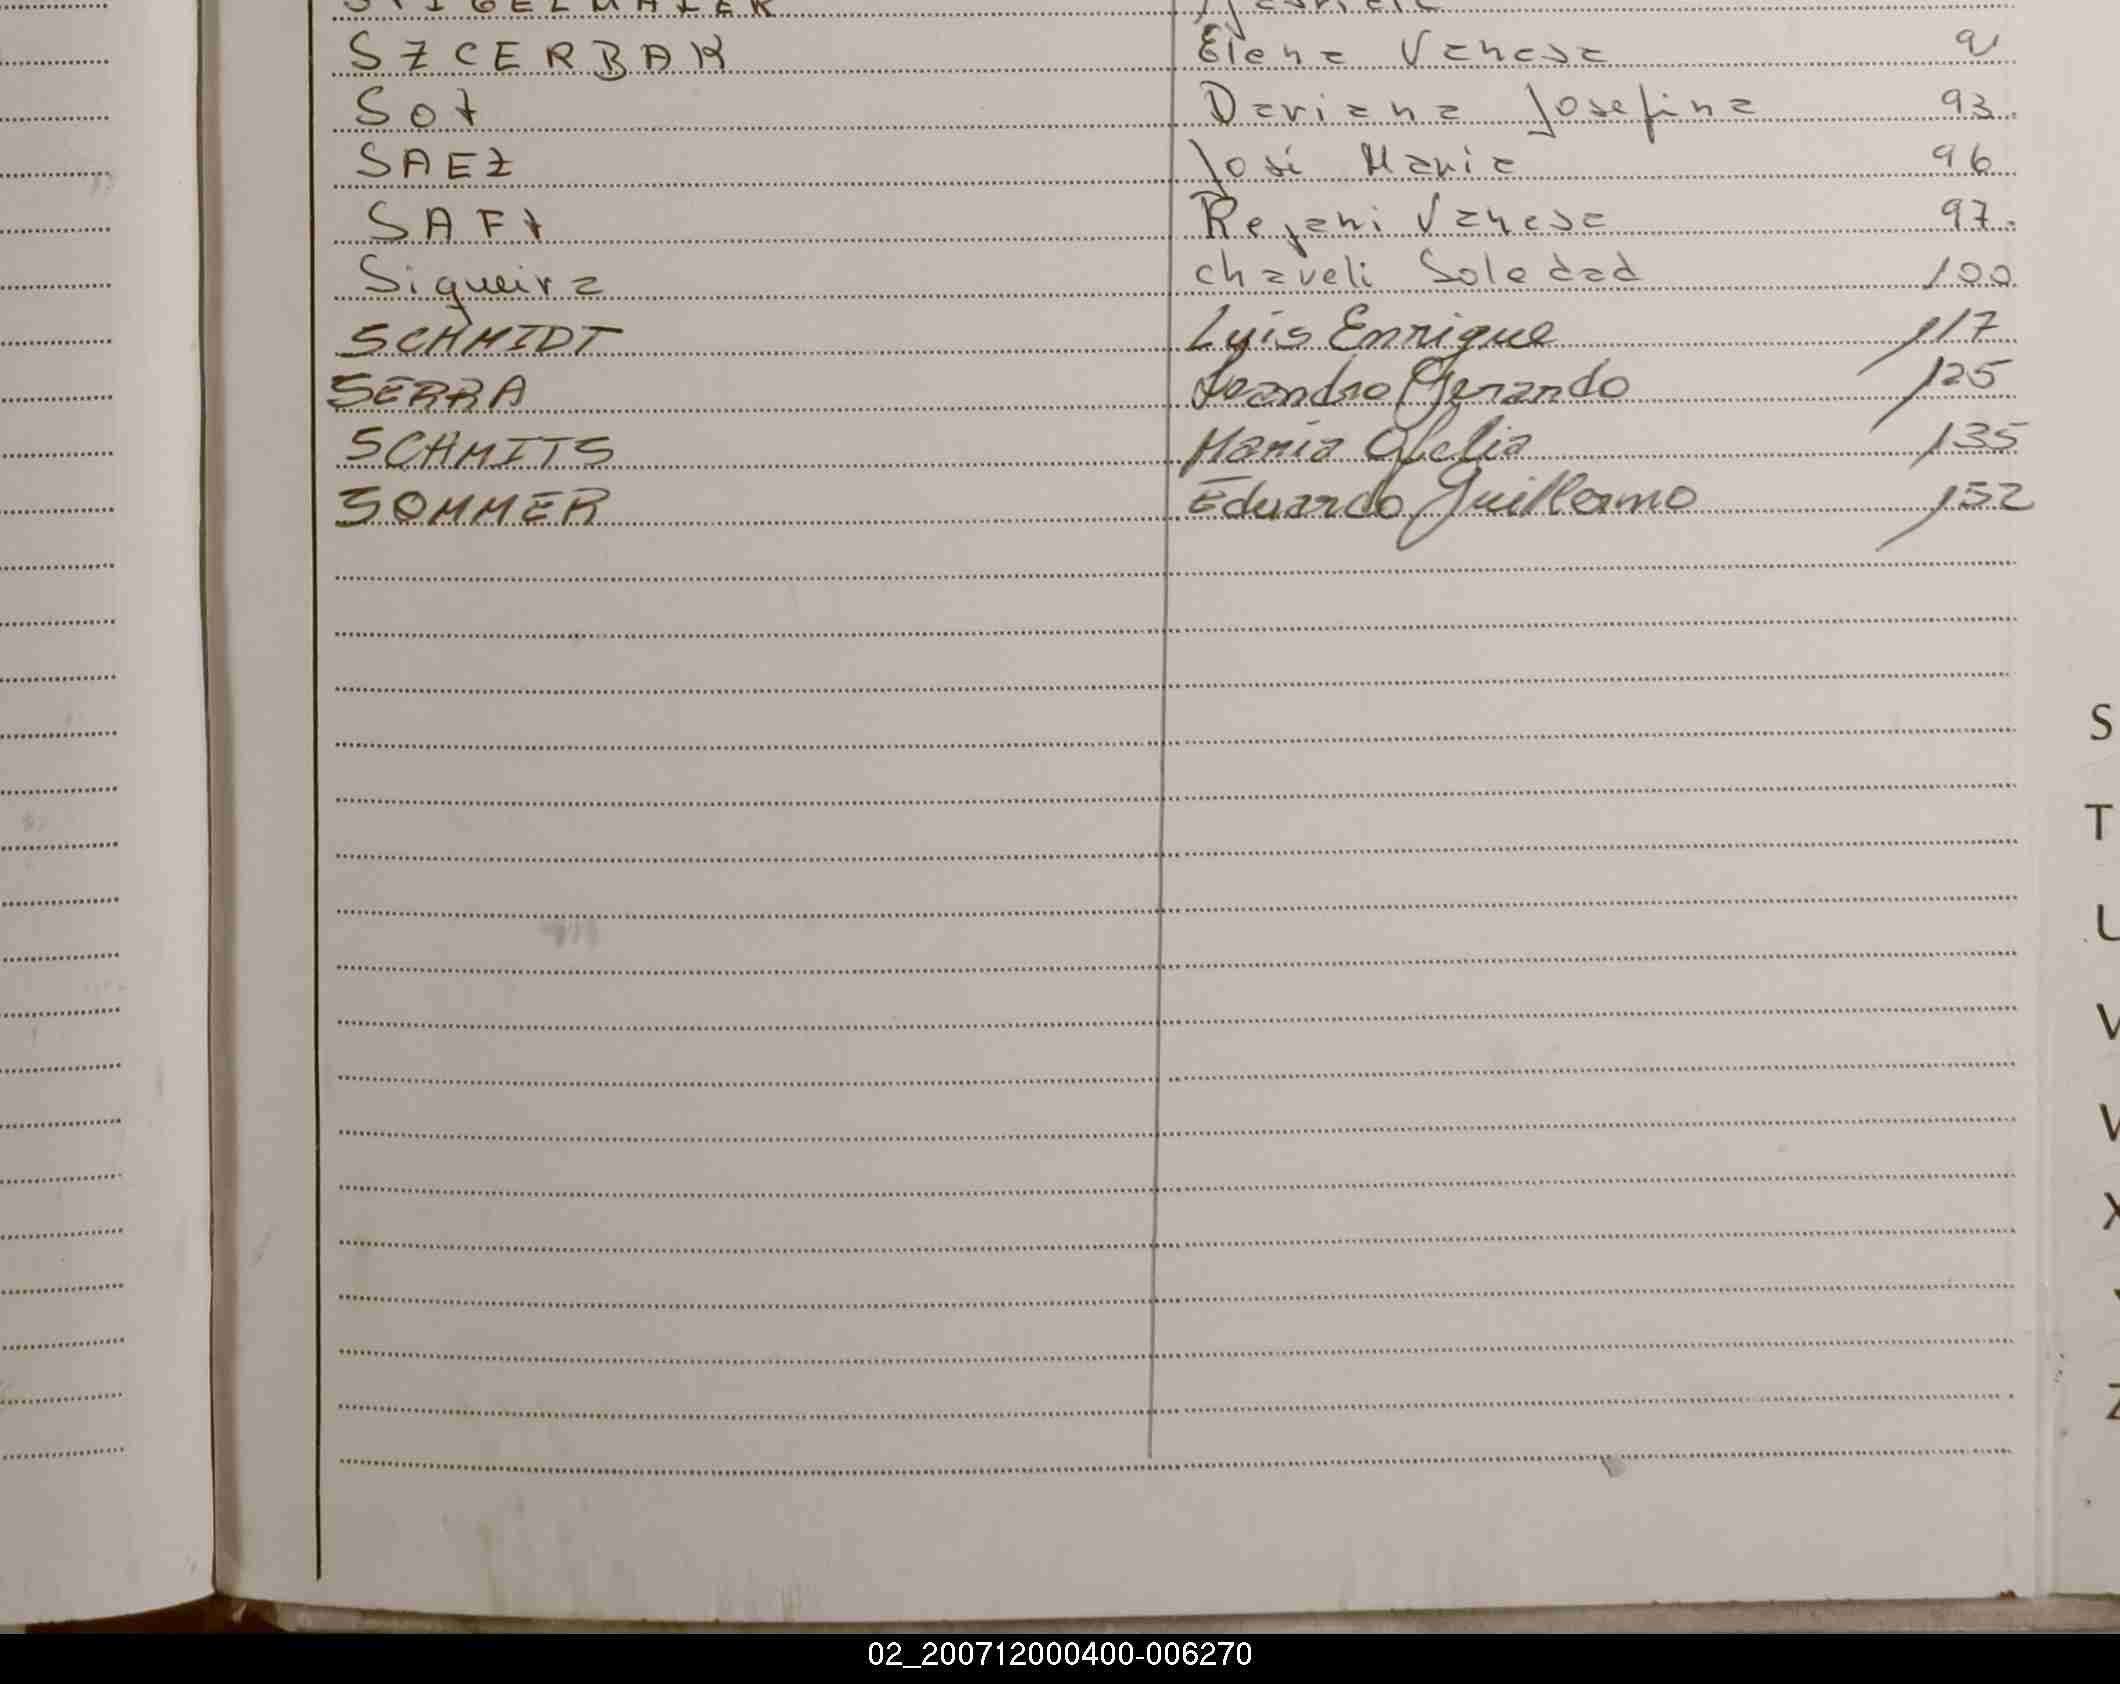 STIGELMAIER Gabriela
SZCERBAK Elena Vanesa 91
Sot Dariana Josefina 93
SAEZ José Maria 96
SAFt Rejani Vanesa 97
Siqueira chaveli Soledad 100
SCHMIDT Luis Enrique 117
SERRA Leandro Gerardo 125
SCHMITS Maria Ofelia 135
SOMMER Eduardo Guillermo 152
S
T
U
V
X
Z
02_200712000400-006270